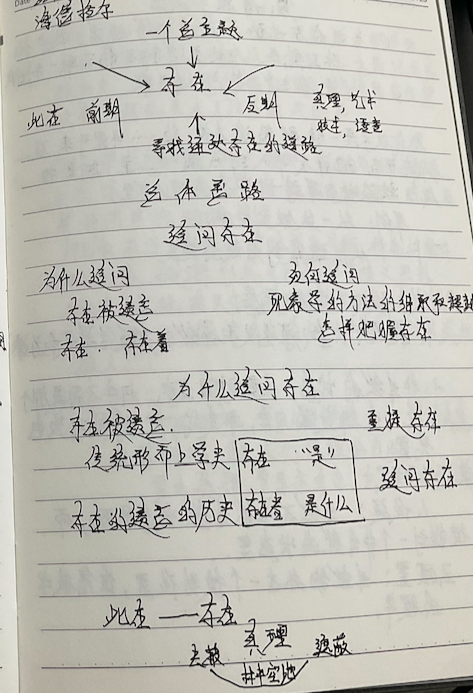 海德格尔
一个总主题
存在
此在 前期 后期 真理,艺术
技术,语言
寻找通达存在的道路
总体思路
追问存在
为什么追问 如何追问
存在被遗忘 现象学的方法的继承和
存在. 存在着 怎样把握存在
为什么追问存在
存在被遗忘. 直接存在
传统形而上学史 存在 “是”
追问存在
存在的遗忘的历史 存在者 是什么
此在——存在
真理
去蔽 遮蔽
林中空地